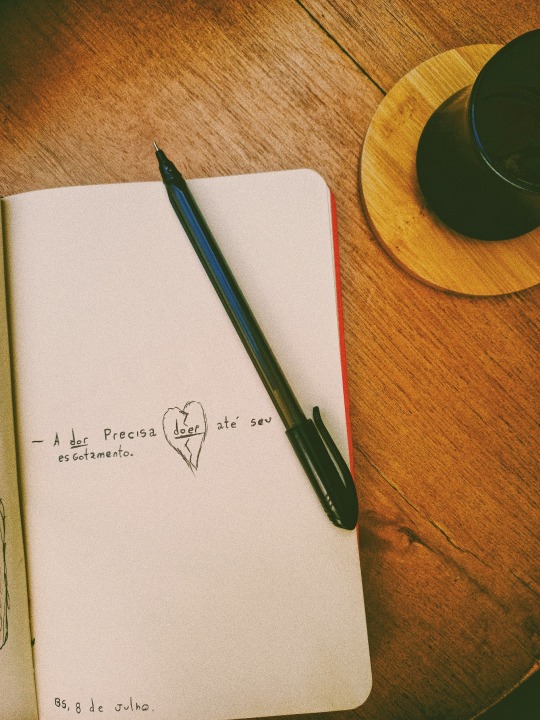 — A dor Precisa doer até seu
esgotamento.
BS, 8 de Julho.